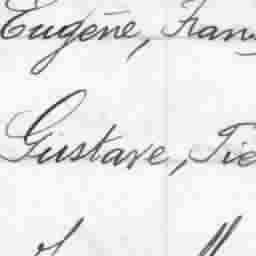 Eugène, Fran
Gustave, Tie